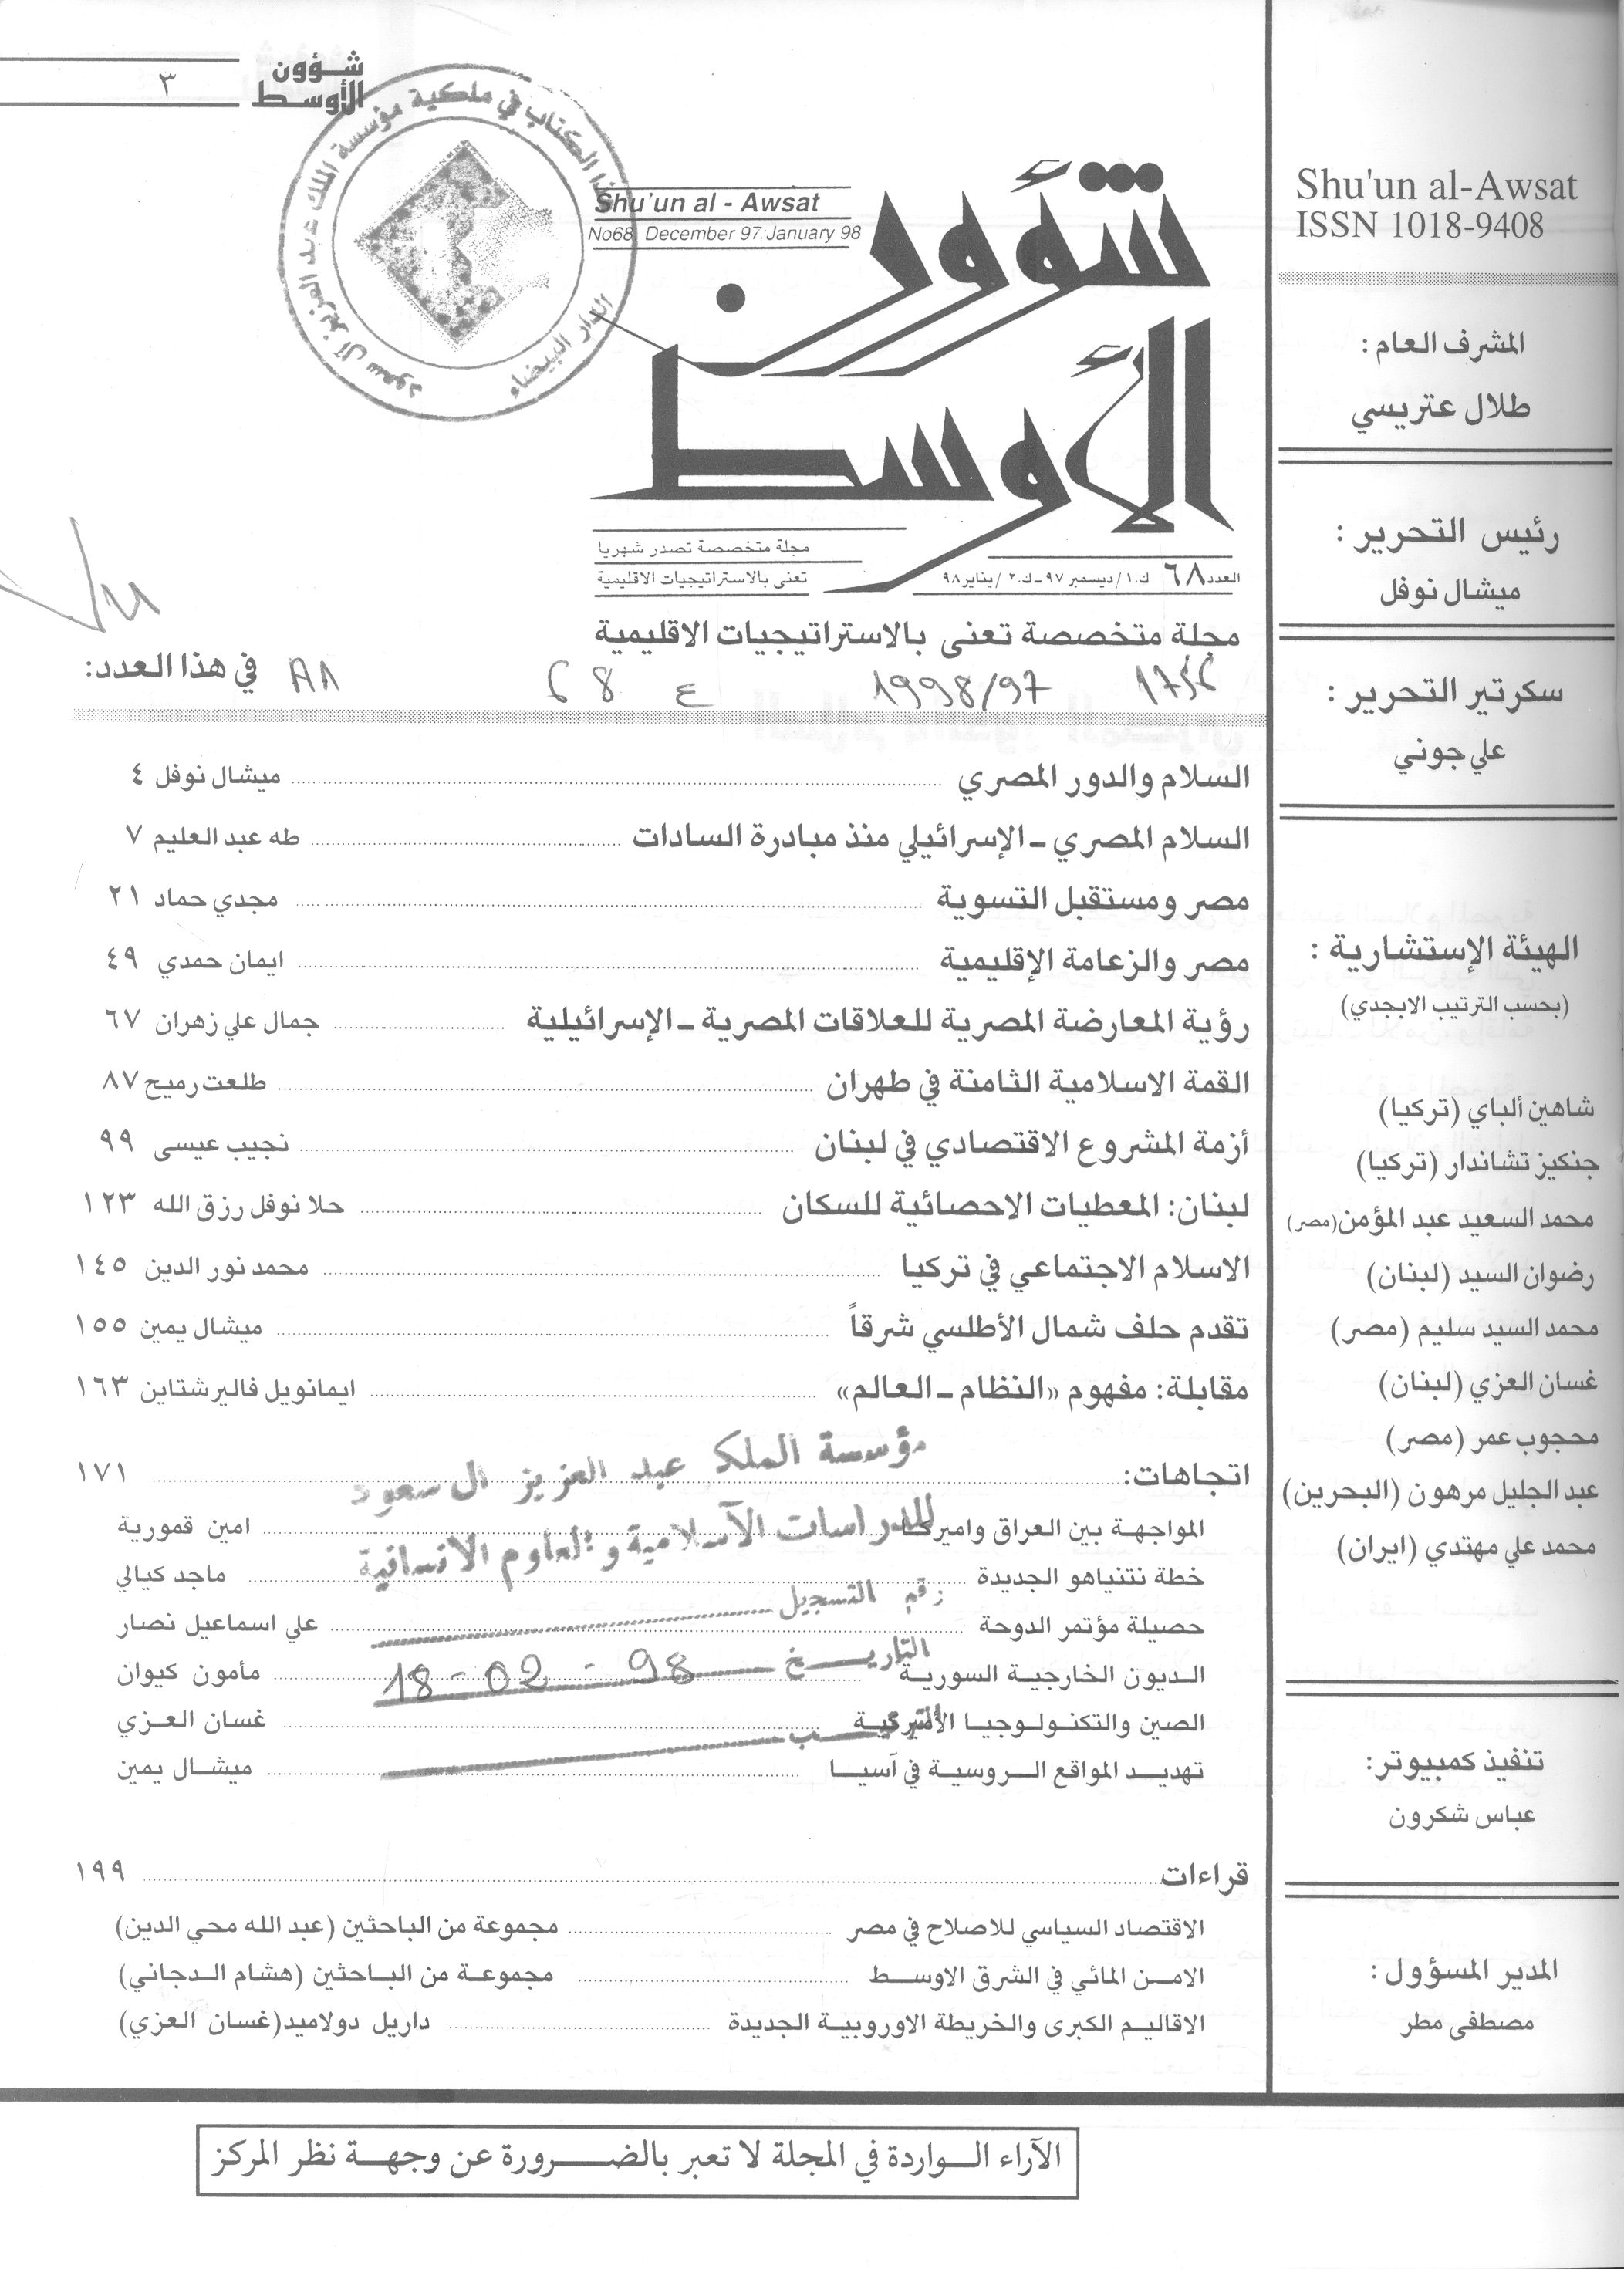 شؤون
الأوسط
٣
هذا الكتاب في ملكية مؤسسة الملك عبد العزيز آل سعود
الدار البيضاء
Shu'un al - Awsat
No68, December 97-January 98
شؤون
الأوسط
مجلة متخصصة تصدر شهريا
تعنى بالاستراتيجيات الاقليمية
العدد ٦٨ ك.١/ديسمبر ٩٧-ك.٢/يناير ٩٨
مجلة متخصصة تعنى بالاستراتيجيات الاقليمية
1998/97 ع 68
في هذا العدد:
السلام والدور المصري ميشال نوفل ٤
السلام المصري - الإسرائيلي منذ مبادرة السادات طه عبد العليم ٧
مصر ومستقبل التسوية مجدي حماد ٢١
مصر والزعامة الإقليمية ايمان حمدي ٤٩
رؤية المعارضة المصرية للعلاقات المصرية - الإسرائيلية جمال علي زهران ٦٧
القمة الاسلامية الثامنة في طهران طلعت رميح ٨٧
أزمة المشروع الاقتصادي في لبنان نجيب عيسى ٩٩
لبنان: المعطيات الاحصائية للسكان حلا نوفل رزق الله ١٢٣
الاسلام الاجتماعي في تركيا محمد نور الدين ١٤٥
تقدم حلف شمال الأطلسي شرقاً ميشال يمين ١٥٥
مقابلة: مفهوم «النظام - العالم» ايمانويل فاليرشتاين ١٦٣
اتجاهات: ١٧١
المواجهة بين العراق واميركا امين قمورية
خطة نتنياهو الجديدة ماجد كيالي
حصيلة مؤتمر الدوحة علي اسماعيل نصار
الديون الخارجية السورية مأمون كيوان
الصين والتكنولوجيا الأميركية غسان العزي
تهديد المواقع الروسية في آسيا ميشال يمين
مؤسسة الملك عبد العزيز آل سعود
للدراسات الاسلامية والعلوم الانسانية
رقم التسجيل
التاريخ 18-02-98
قراءات ١٩٩
الاقتصاد السياسي للاصلاح في مصر مجموعة من الباحثين (عبد الله محي الدين)
الامن المائي في الشرق الاوسط مجموعة من الباحثين (هشام الدجاني)
الاقاليم الكبرى والخريطة الاوروبية الجديدة داريل دولاميد (غسان العزي)
Shu'un al-Awsat
ISSN 1018-9408
المشرف العام:
طلال عتريسي
رئيس التحرير:
ميشال نوفل
سكرتير التحرير:
علي جوني
الهيئة الإستشارية:
(بحسب الترتيب الابجدي)
شاهين ألباي (تركيا)
جنكيز تشاندار (تركيا)
محمد السعيد عبد المؤمن (مصر)
رضوان السيد (لبنان)
محمد السيد سليم (مصر)
غسان العزي (لبنان)
محجوب عمر (مصر)
عبد الجليل مرهون (البحرين)
محمد علي مهتدي (ايران)
تنفيذ كمبيوتر:
عباس شكرون
المدير المسؤول:
مصطفى مطر
الآراء الواردة في المجلة لا تعبر بالضرورة عن وجهة نظر المركز